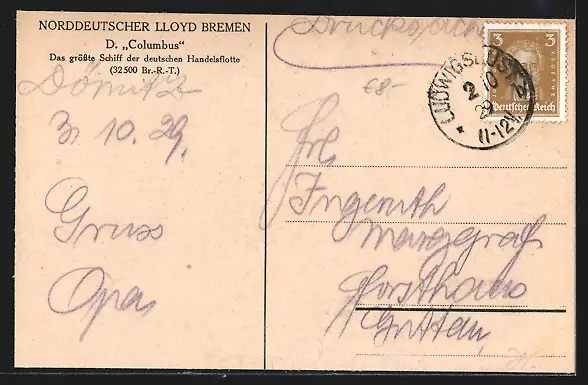 NORDDEUTSCHER LLOYD BREMEN
D. „Columbus"
Das größte Schiff der deutschen Handelsflotte
(32500 Br.-R.-T.)
Drucksache
3
Deutsches Reich
LUDWIGSLUST
2 10 29
11-12V
€8-
Dömitz
3. 10. 29.
Gruss
Opa
Frl.
Ingeruth
Marggraf
Forsthaus